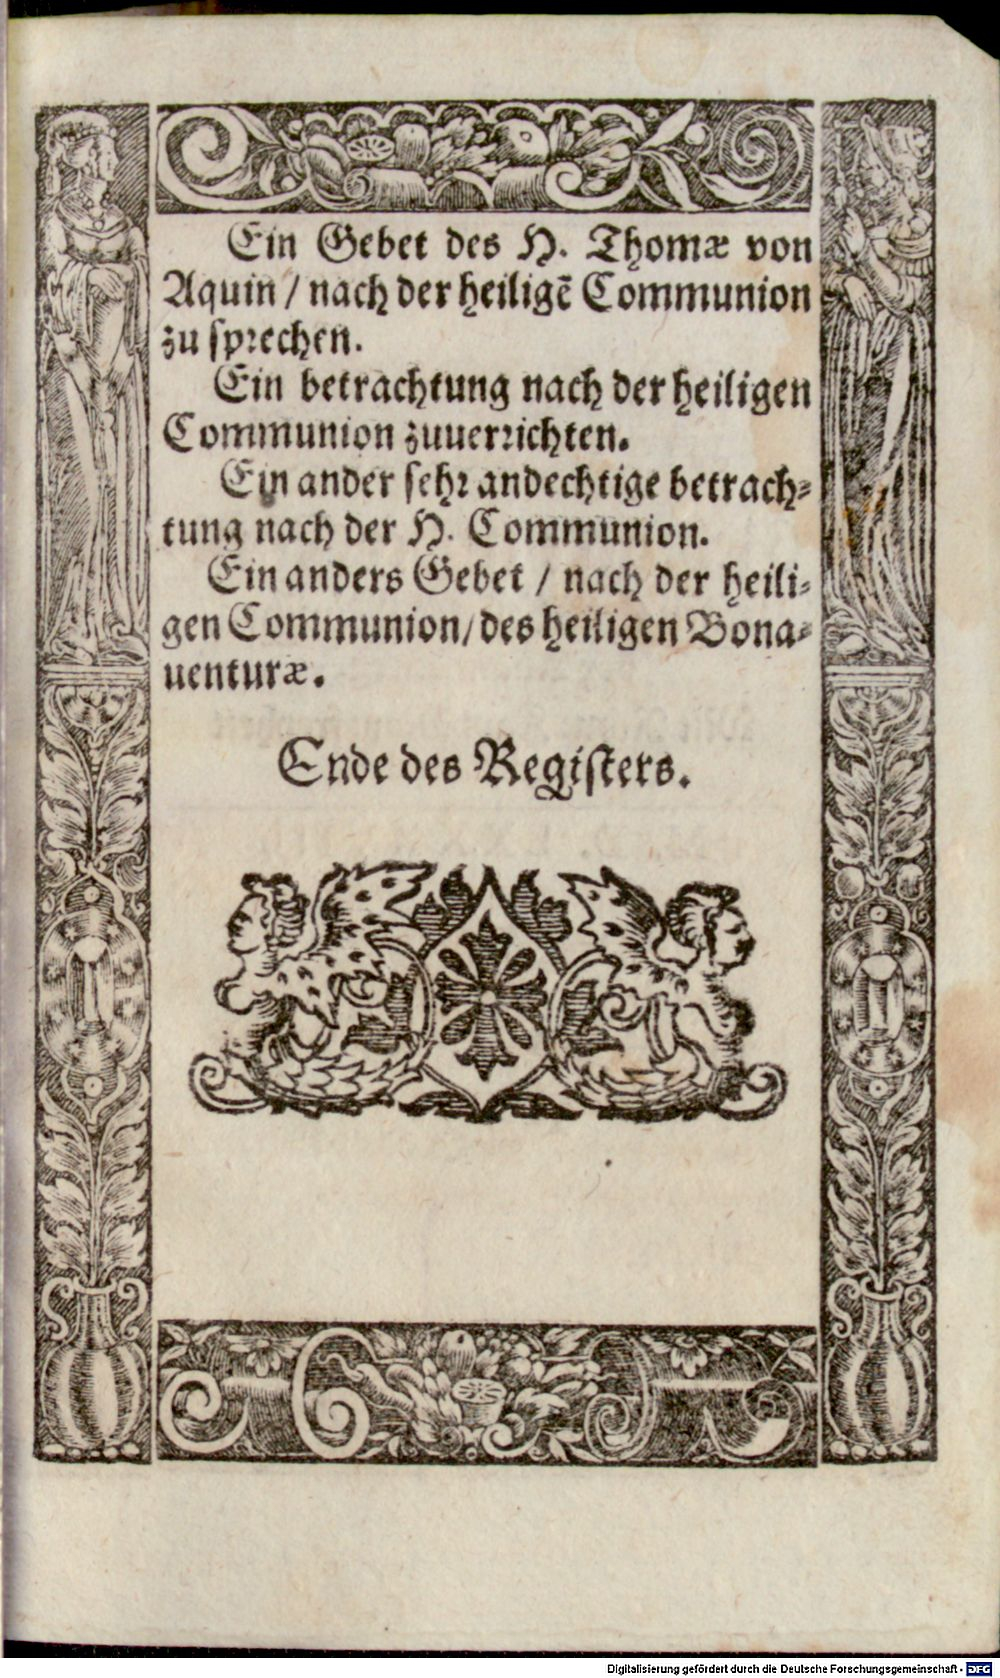 Ein Gebet des H. Thomæ von
Aquin / nach der heiligẽ Communion
zu sprechen.
Ein betrachtung nach der heiligen
Communion zuuerrichten.
Ein ander sehr andechtige betrach-
tung nach der H. Communion.
Ein anders Gebet / nach der heili-
gen Communion / des heiligen Bona-
uenturæ.
Ende des Registers.
Digitalisierung gefördert durch die Deutsche Forschungsgemeinschaft - DFG